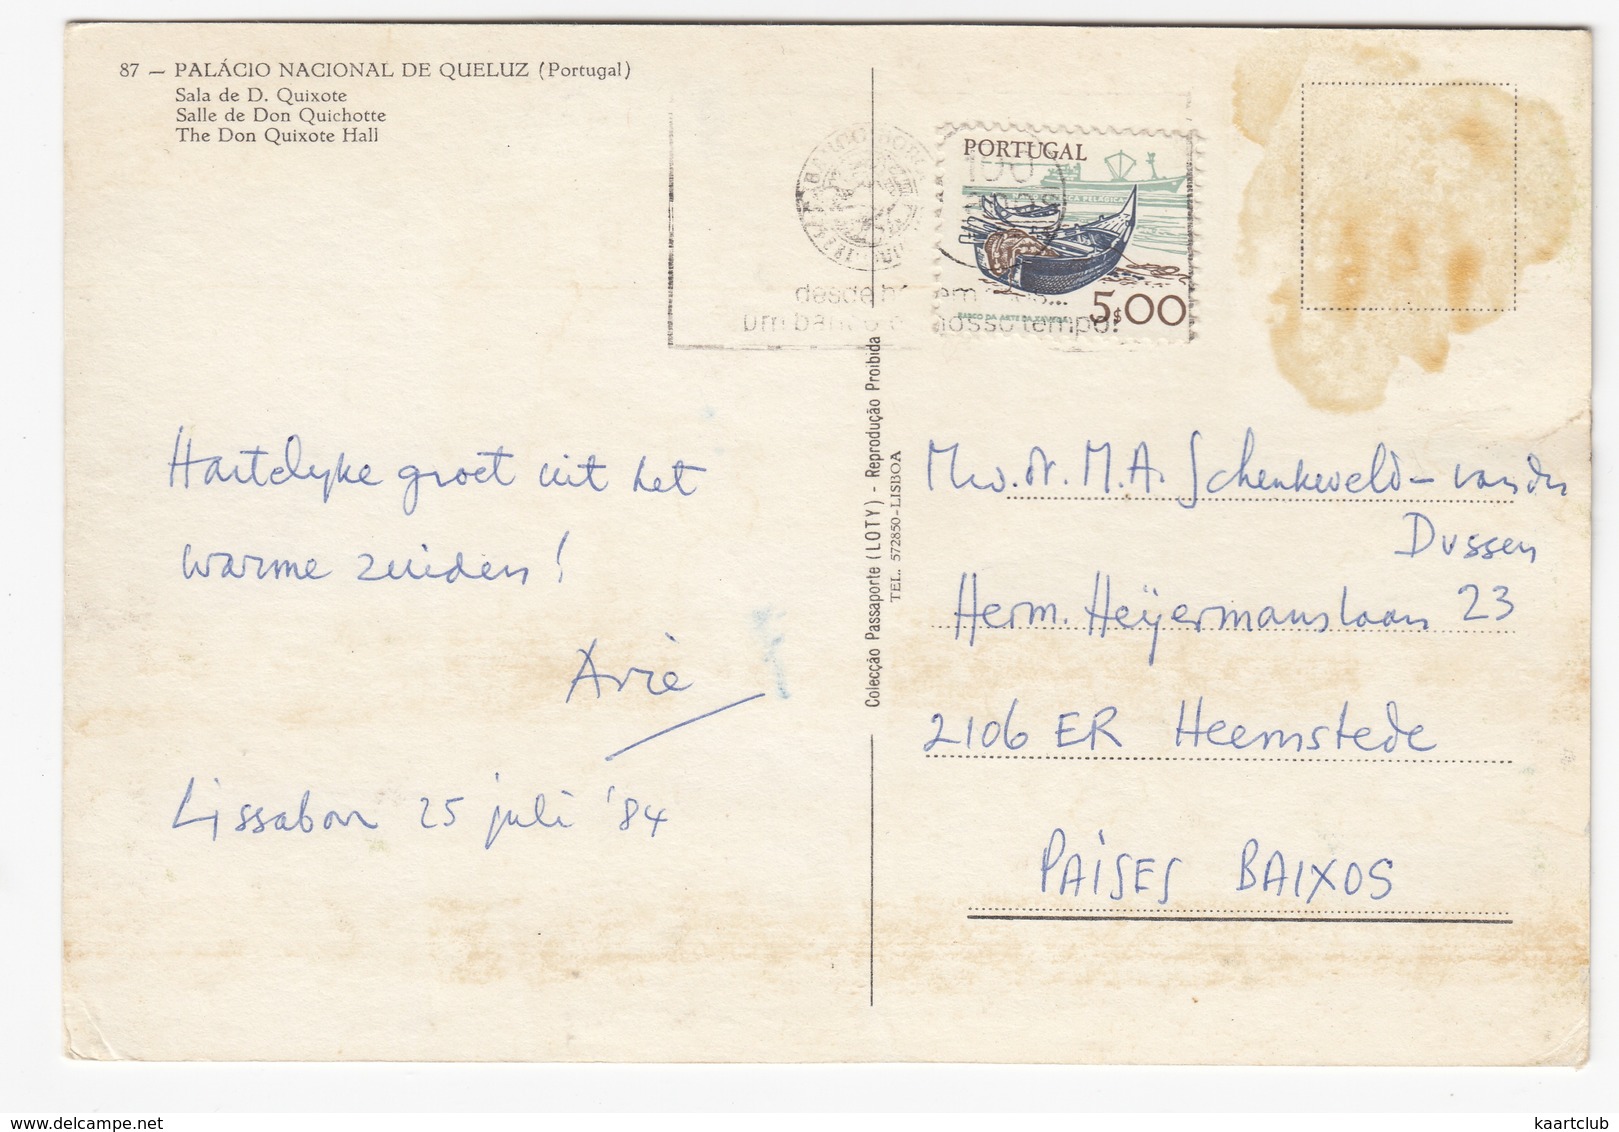 87 — PALÁCIO NACIONAL DE QUELUZ (Portugal)
Sala de D. Quixote
Salle de Don Quichotte
The Don Quixote Hall
PORTUGAL
100
anos
PESCA PELÁGICA
5$00
BARCO DA ARTE DA XÁVEGA
desde
um banco do nosso tempo!
Colecção Passaporte (LOTY) - Reprodução Proibida
TEL. 572850-LISBOA
Hartelijke groet uit het
warme zuiden!
Arie
Lissabon 25 juli '84
Mw. dr. M. A. Schenkeveld - van der
Dussen
Herm. Heijermanslaan 23
2106 ER Heemstede
PAÍSES BAIXOS
delcampe.net
kaartclub